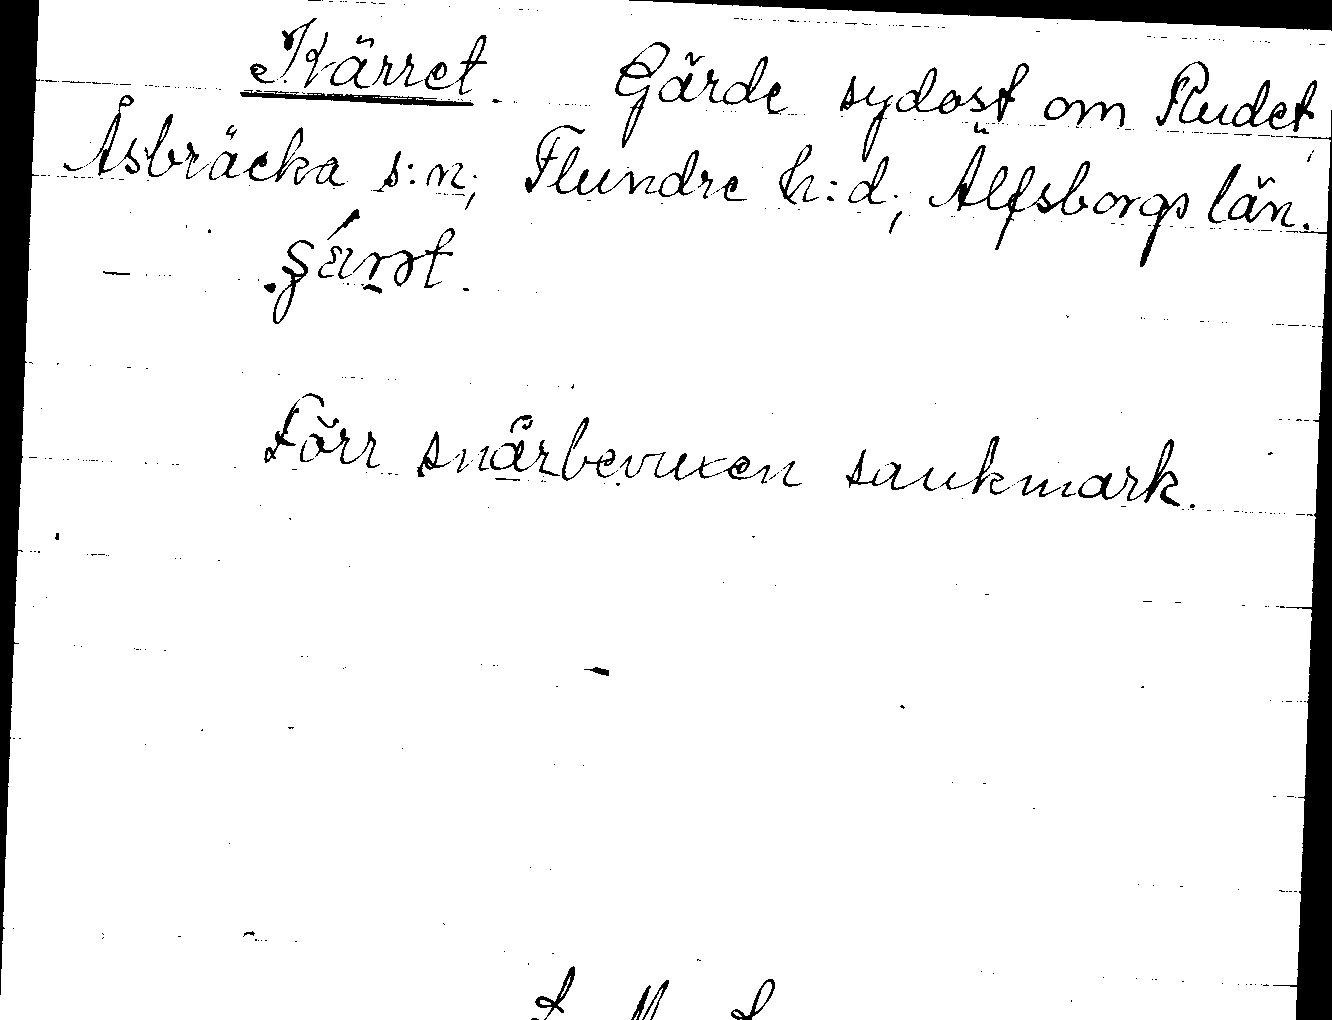 Kärret. Gärde sydost om Rudet,
Åsbräcka s:n; Flundre h:d; Älfsborgs län.
Förr snårbevuxen sankmark.